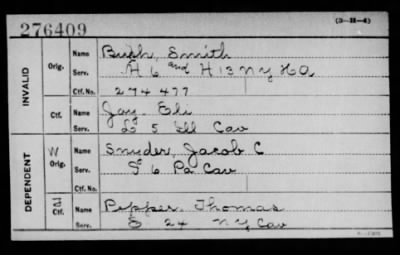 276409
(3-H-4)
INVALID
Orig. Name Bush, Smith
Serv. A 6 and H 13 NY HA
Ctf. No. 274477
Ctf. Name Jay, Eli
Serv. L 5 Ill Cav
DEPENDENT
W
Orig. Name Snyder, Jacob C
Serv. I 6 Pa Cav
Ctf. No.
Ctf. Name Pepper, Thomas
Serv. 24 NY Cav